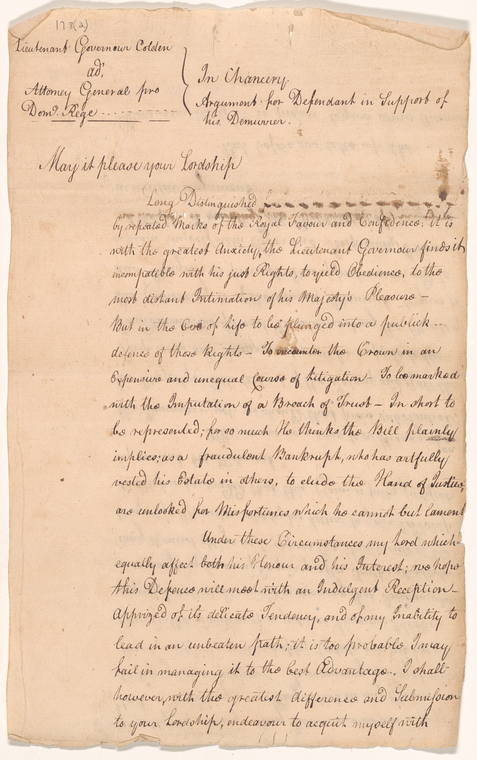 178(2)
Lieutenant Governour Colden
ad.
Attorney General pro
Domo. Rege
In Chancery.
Argument for Defendant in Support of
his Demurrer.
May it please your Lordship
Long Distinguished
by repeated Marks of the Royal Favour and Confidence, it is
with the greatest Anxiety, the Lieutenant Governour finds it
incompatible with his just Rights, to yield Obedience, to the
most distant Intimation of his Majesty's Pleasure —
But in the Eve of Life to be plunged into a publick
defence of these Rights — To encounter the Crown in an
Expensive and unequal Course of Litigation — To be marked
with the Imputation of a Breach of Trust — In short to
be represented; for so much He thinks the Bill plainly
implies; as a fraudulent Bankrupt, who has artfully
vested his Estate in others, to elude the Hand of Justice,
are unlooked for Misfortunes which he cannot but lament
Under these Circumstances my Lord which
equally affect both his Honour and his Interest; we hope
this Defence will meet with an Indulgent Reception —
Apprized of its delicate Tendency, and of my Inability to
lead in an unbeaten path; it is too probable I may
fail in managing it to the best Advantage. I shall
however, with the greatest difference and Submission
to your Lordship, endeavour to acquit myself with